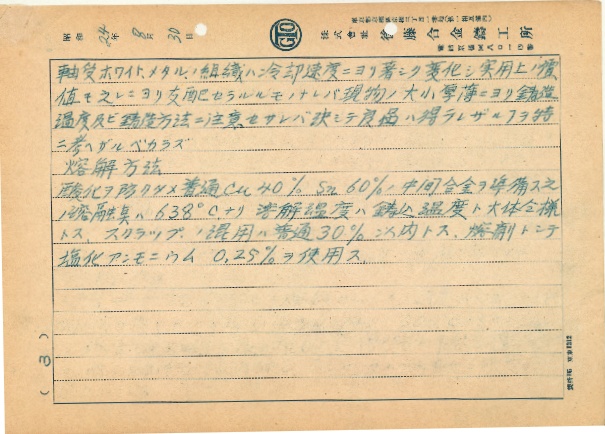 昭和 24年 8月 30日
GTO
株式会社 後藤合金鋳工所
軸受ホワイトメタルノ組織ハ冷却速度ニヨリ著シク変化シ実用上ノ價
値モ之レニヨリ支配セラルルモノナレバ現物ノ大小厚薄ニヨリ鋳造
温度及ビ鋳造方法ニ注意セザレバ決シテ良品ハ得ラレザル
ニ考ヘザルベカラズ
熔解方法
酸化ヲ防グタメ普通Cu 40% Sn 60%ノ中間合金ヲ準備ス之
ノ熔融点ハ638°Cナリ 溶解温度ハ鋳込温度ト大体仝様
トス、スクラップノ混用ハ普通30%以内トス、熔剤トシテ
塩化アンモニウム 0.25%ヲ使用ス
(3)